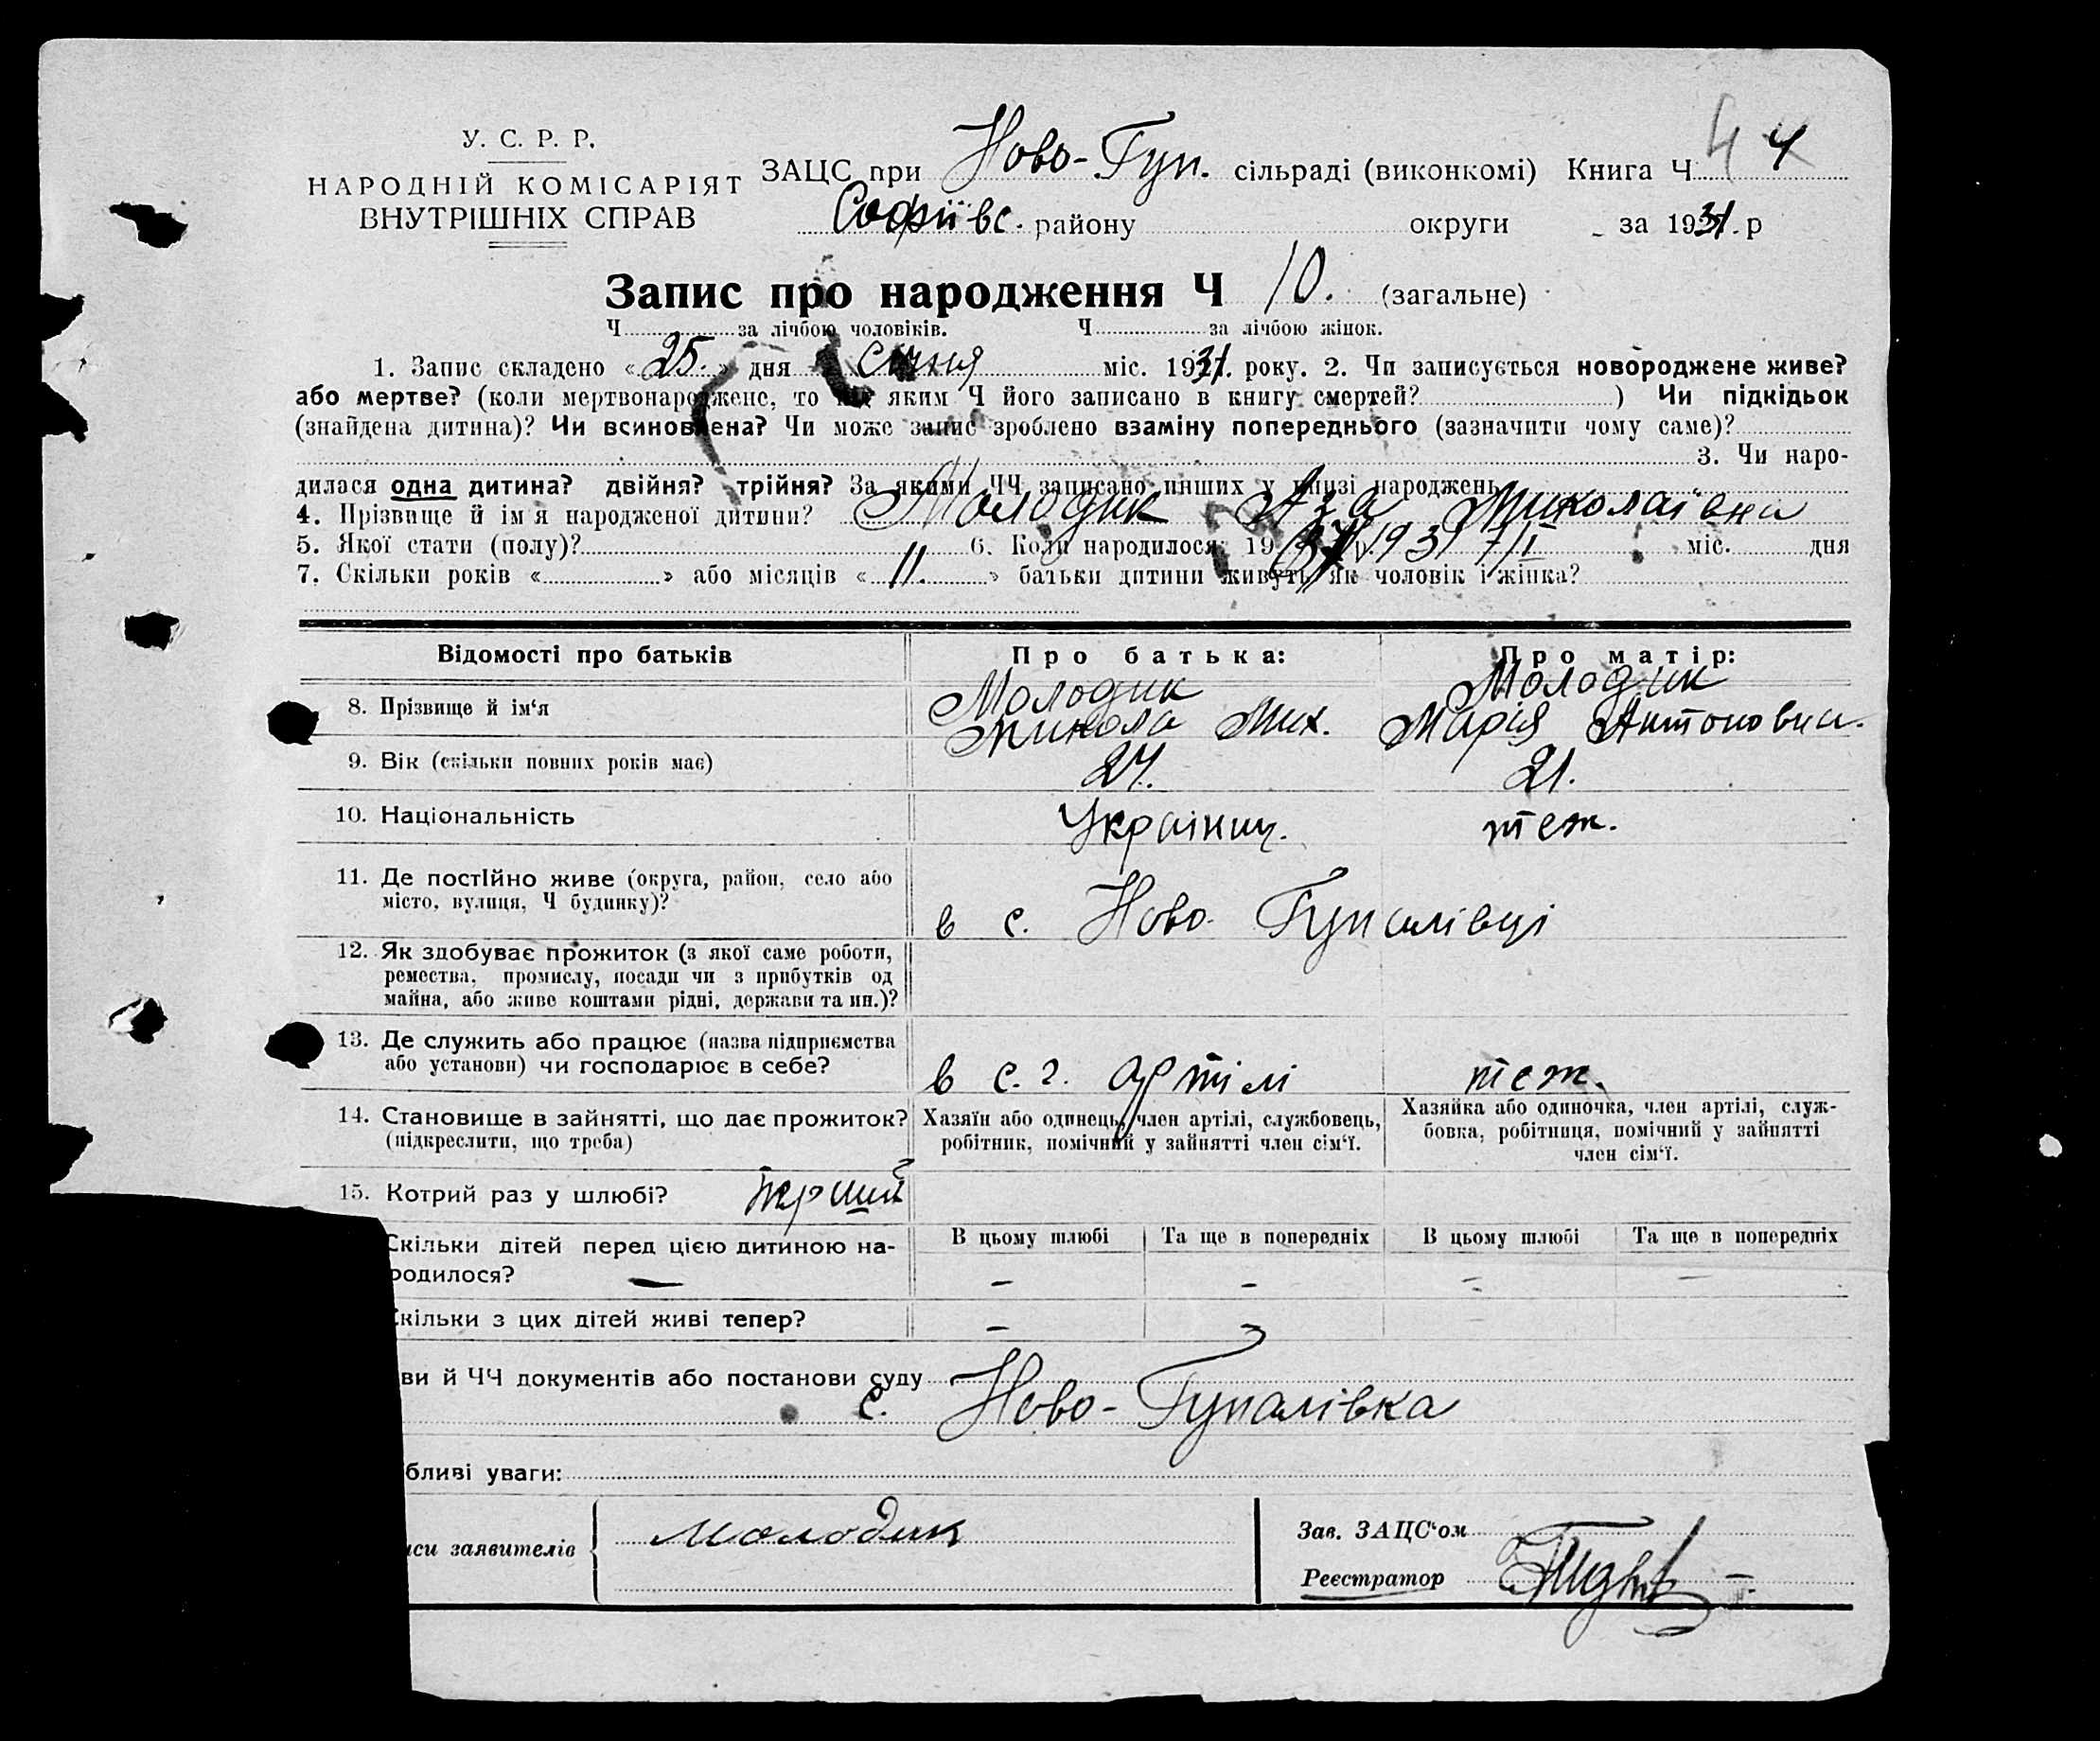 У. С. Р. Р.
НАРОДНІЙ КОМІСАРІЯТ
ВНУТРІШНІХ СПРАВ
ЗАЦС при Ново-Гуп. сільраді (виконкомі) Книга Ч 4 4
Софіївс. району округи за 1931. р
Запис про народження Ч 10. (загальне)
Ч за лічбою чоловіків. Ч за лічбою жінок.
1. Запис складено « 25. » дня січня міс. 1931. року. 2. Чи записується новороджене живе?
або мертве? (коли мертвонароджене, то під яким Ч його записано в книгу смертей? ) Чи підкідьок
(знайдена дитина)? Чи всиновлена? Чи може запис зроблено взаміну попереднього (зазначити чому саме)?
3. Чи наро-
дилася одна дитина? двійня? трійня? За якими ЧЧ записано инших у книзі народжень
4. Прізвище й ім'я народженої дитини? Молодик Аза Миколаівна
5. Якої стати (полу)? 6. Коли народилося 19 1931 7/I міс. дня
7. Скільки років « » або місяців « 11. » батьки дитини живуть як чоловік і жінка?
Відомості про батьків Про батька: Про матір:
8. Прізвище й ім'я Молодик Микола Мих. Молодик Марія Антоновна.
9. Вік (скільки повних років має) 24. 21.
10. Національність Українц. теж.
11. Де постІйно живе (округа, район, село або
місто, вулиця, Ч будинку)? в с. Ново-Гупалівці
12. Як здобуває прожиток (з якої саме роботи,
ремества, промислу, посади чи з прибутків од
майна, або живе коштами рідні, держави та ин.)?
13. Де служить або працює (назва підприємства
або установи) чи господарює в себе? в с. г. артілі теж.
14. Становище в зайнятті, що дає прожиток?
(підкреслити, що треба)
Хазяїн або одинець, член артілі, службовець,
робітник, помічний у зайнятті член сім'ї.
Хазяйка або одиночка, член артілі, служ-
бовка, робітниця, помічний у зайнятті
член сім'ї.
15. Котрий раз у шлюбі? перший
Скільки дітей перед цією дитиною на-
родилося? —
В цьому шлюбі Та ще в попередніх В цьому шлюбі Та ще в попередніх
– – – –
Скільки з цих дітей живі тепер? –
ви й ЧЧ документів або постанови суду
с. Ново-Гупалівка
бливі уваги:
иси заявителів Молодик
Зав. ЗАЦС'ом
Реєстратор